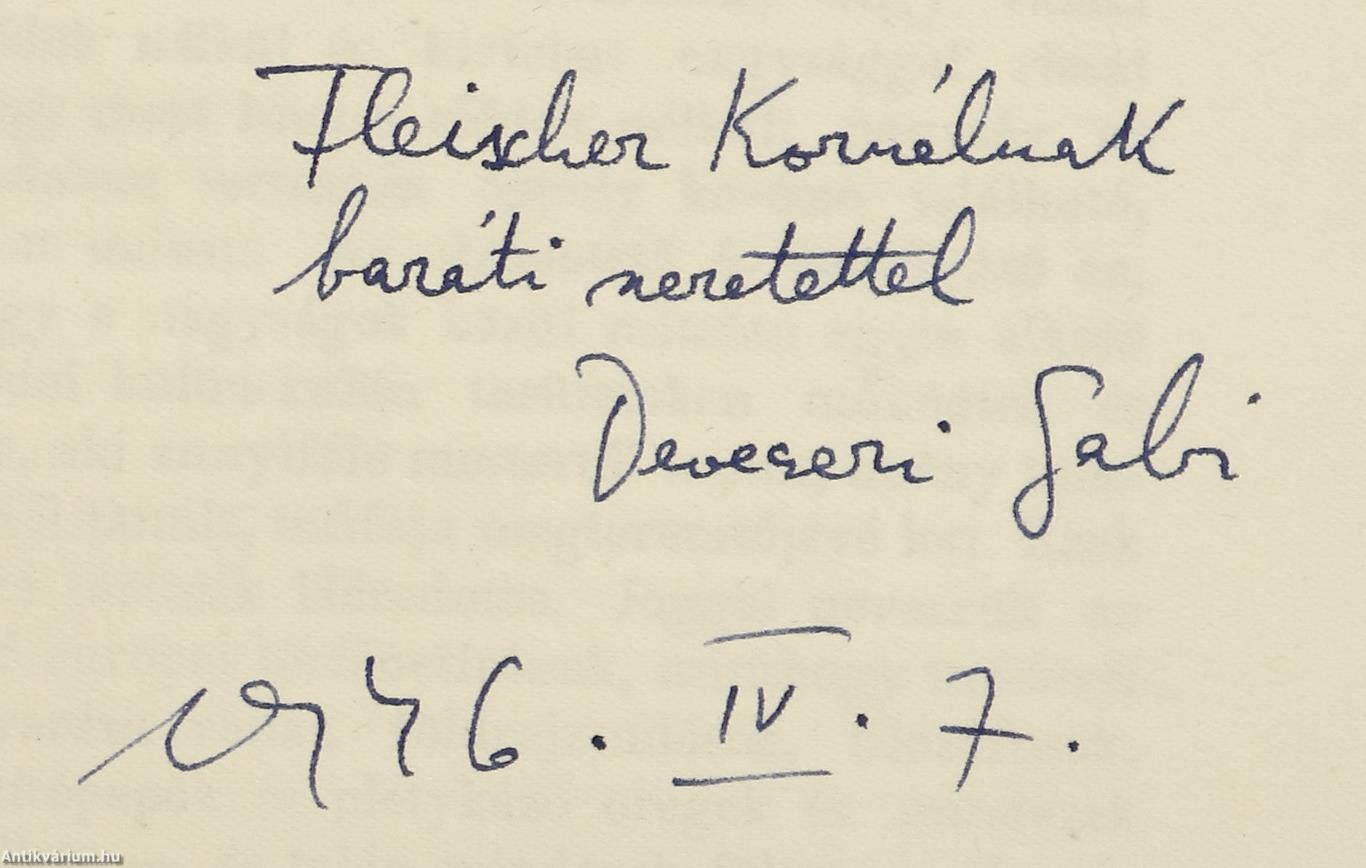 Fleischer Kornélnak
baráti szeretettel
Devecseri Gabi
1946. IV. 7.
Antikvárium.hu